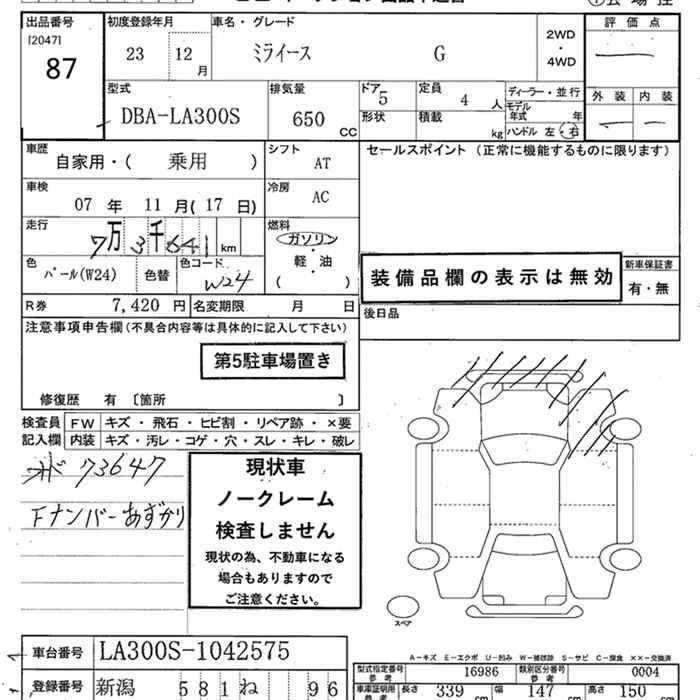 出品番号
[2047]
87
初度登録年月
23 12 月
車名・グレード
ミライース G
2WD
・
4WD
評価点
外装 内装
型式
DBA-LA300S
排気量
650 CC
ドア 5
形状
定員 4 人
積載 kg
ディーラー・並行
モデル
年式 年
ハンドル 左・右
車歴
自家用・( 乗用 )
シフト
AT
車検
07 年 11 月(17 日)
冷房
AC
走行
7万3千641 km
燃料
ガソリン
・
軽・油
( )
色
パール(W24)
色替
色コード
W24
R券 7,420 円 名変期限 月 日
セールスポイント (正常に機能するものに限ります)
装備品欄の表示は無効
新車保証書
有・無
後日品
注意事項申告欄(不具合内容等は具体的に記入して下さい)
第5駐車場置き
修復歴 有 〔箇所 〕
検査員 FW キズ・飛石・ヒビ割・リペア跡・×要
記入欄 内装 キズ・汚レ・コゲ・穴・スレ・キレ・破レ
73647
Fナンバーあずかり
現状車
ノークレーム
検査しません
現状の為、不動車になる
場合もありますので
ご注意ください。
スペア
A－キズ E－エクボ U－凹み W－補修跡 S－サビ C－腐食 ××－交換済
車台番号 LA300S-1042575
登録番号 新潟 581 ね 96
型式指定番号
参考
16986
類別区分番号
参考
0004
車庫証明用
参考
長さ 339 cm 幅 147 cm 高さ 150 cm